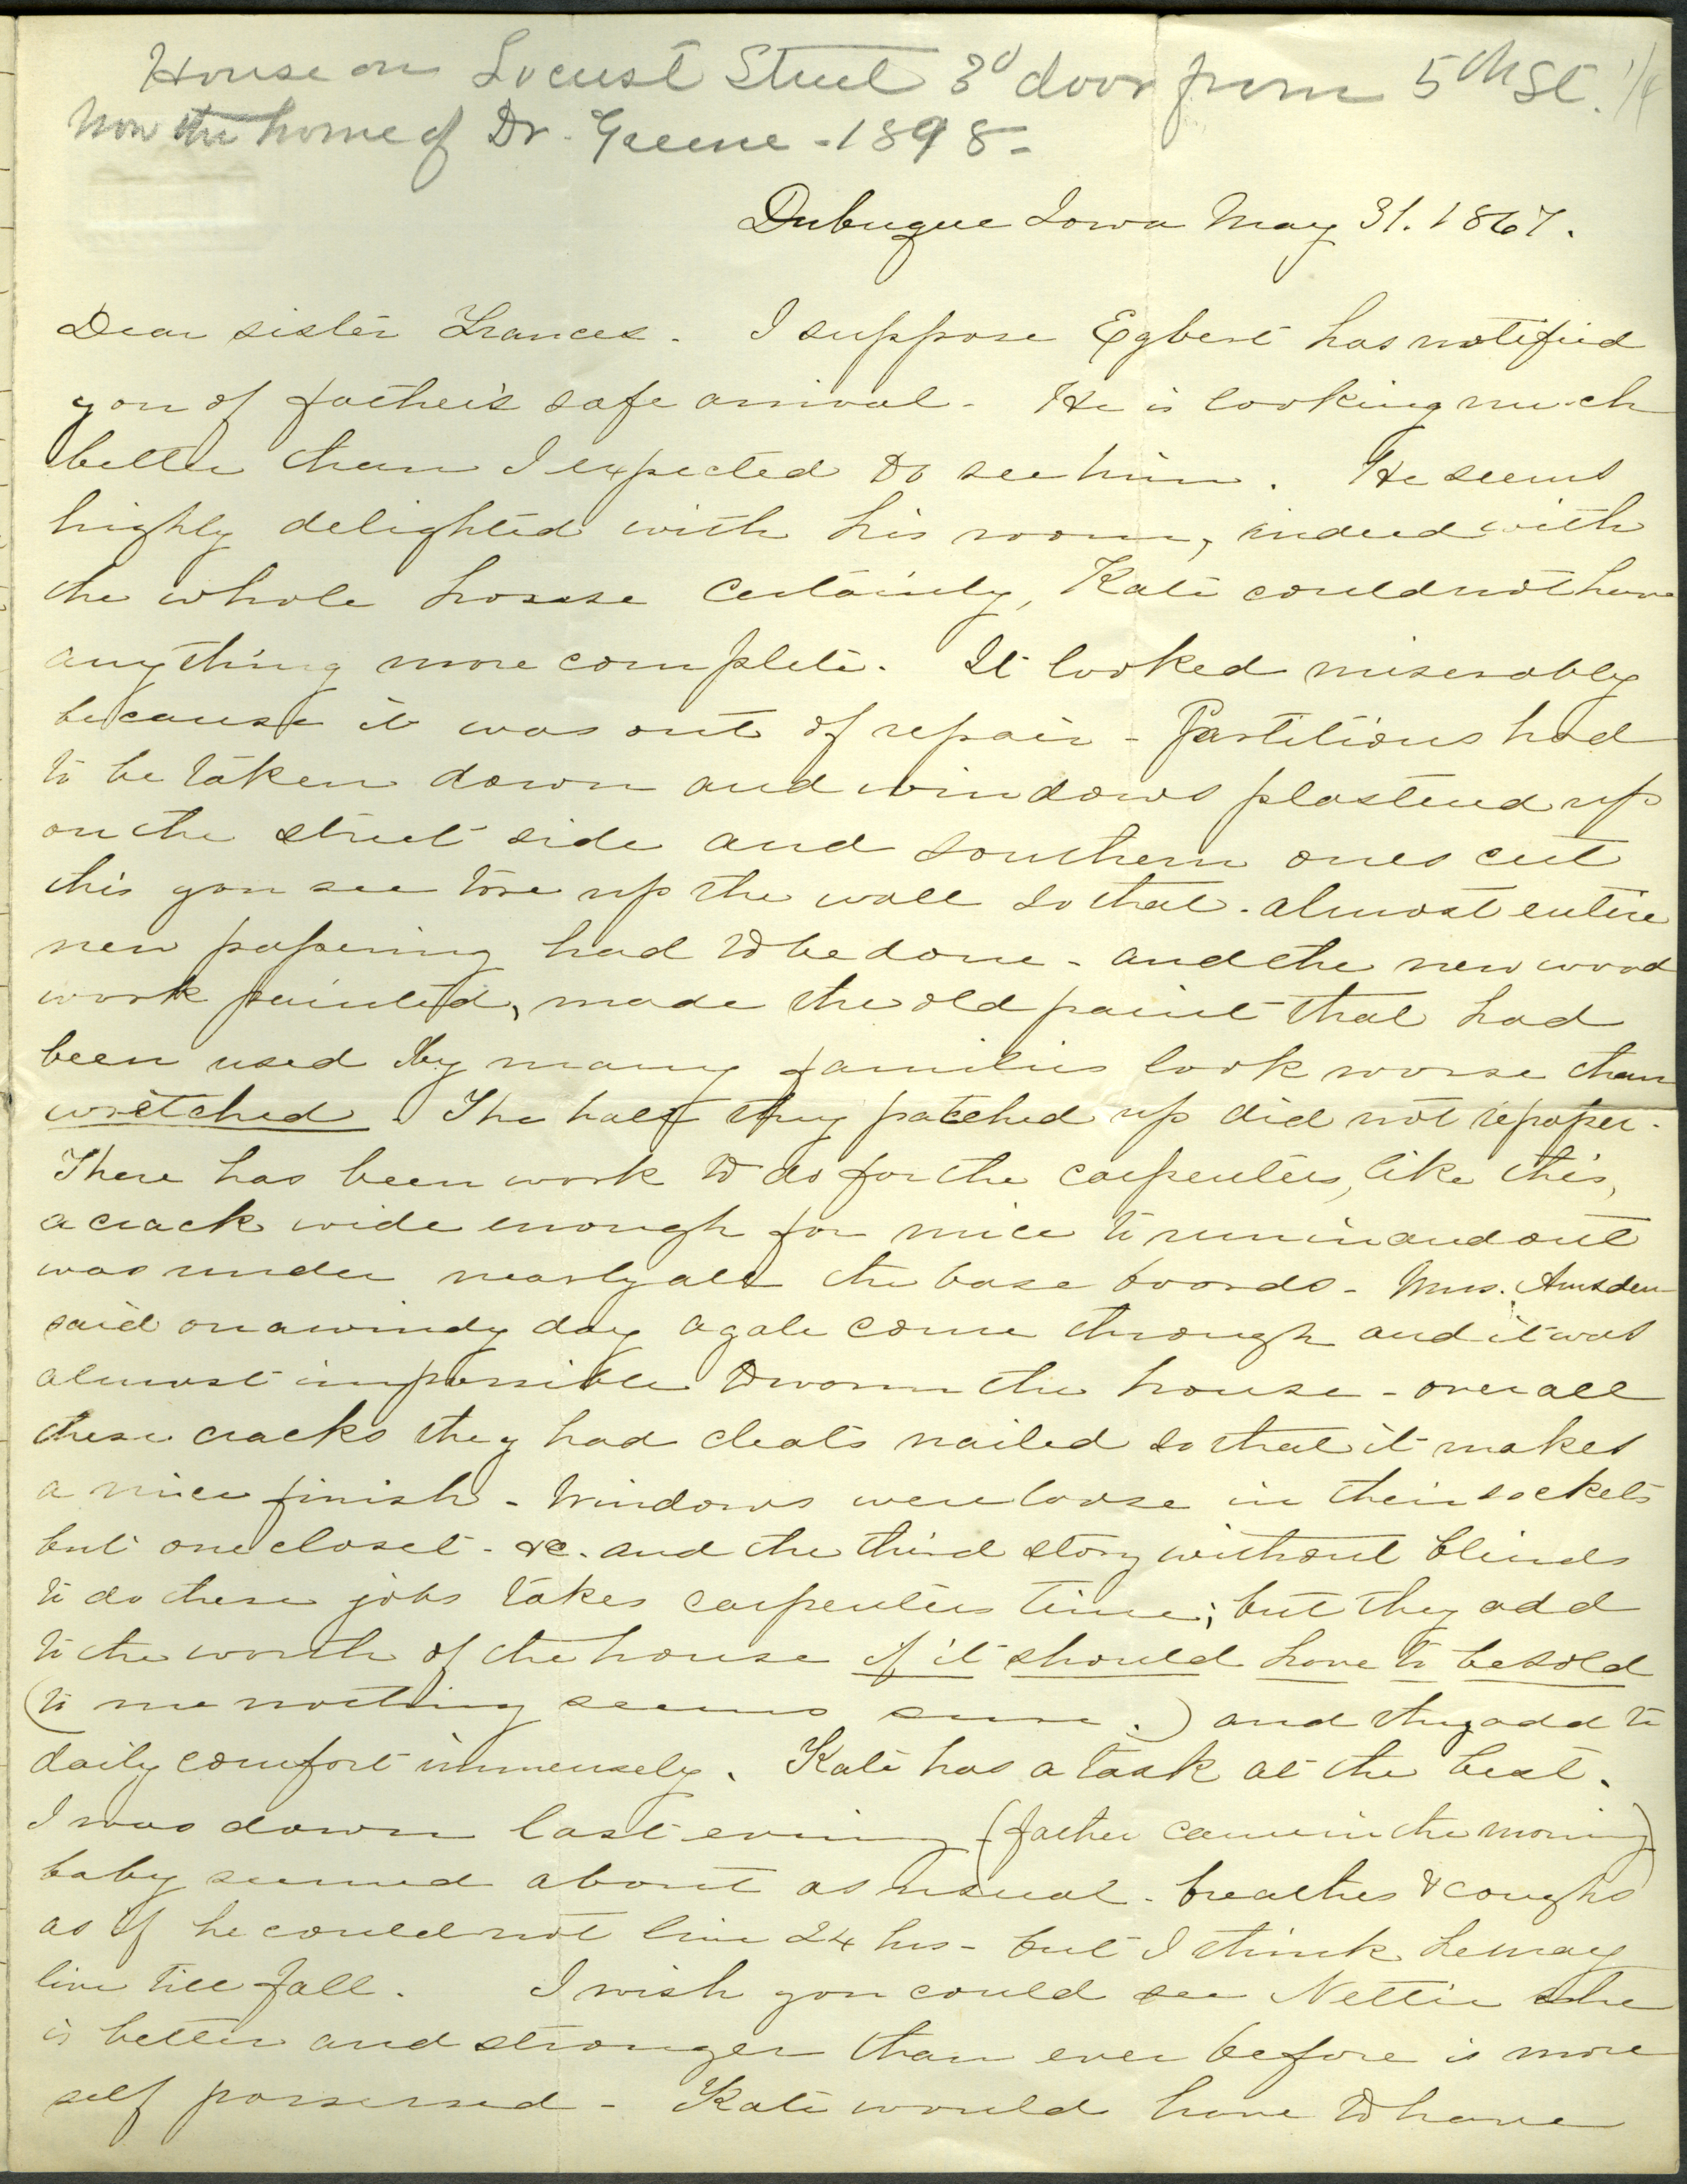 House on Locust Street 3d door from 5th St. 1/4
Now the home of Dr. Greene - 1898 -
Dubuque Iowa May 31. 1867.
Dear sister Frances. I suppose Egbert has notified
you of father's safe arrival - He is looking much
better than I expected to see him. He seems
highly delighted with his room, indeed with
the whole house certainly, Kate could not have
anything more complete. It looked miserably
because it was out of repair - Partitions had
to be taken down and windows plastered up
on the street side and southern ones cut
this you see tore up the wall so that - almost entire
new papering had to be done - and the new wood
work painted, made the old paint that had
been used by many families look worse than
wretched. The half they patched up did not repaper -
There has been work to do for the carpenters, like this,
a crack wide enough for mice to run in and out
was under nearly all the base boards - Mrs. Amsden
said on a windy day a gale come through and it was
almost impossible to warm the house - over all
these cracks they had cleats nailed so that it makes
a nice finish - Windows were loose in their sockets
but one closet - &c. and the third story without blinds
to do these jobs takes carpenters time; but they add
to the worth of the house if it should have to be sold
(to me nothing seems sure.) and they add to
daily comfort immensely. Kate has a task at the best.
I was down last evening (father came in the morning)
baby seemed about as usual - breathes & coughs
as if he could not live 24 hrs - but I think he may
live till fall. I wish you could see Nettie she
is better and stronger than ever before is more
self possessed - Kate would have to have